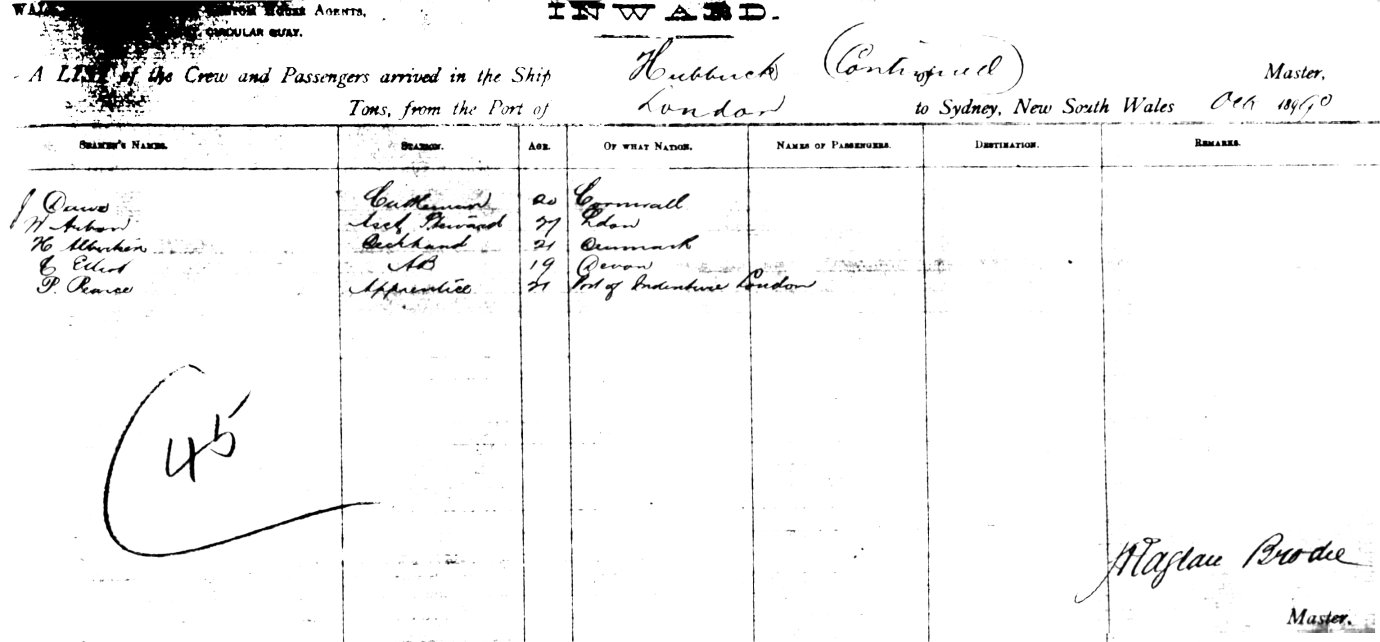 HOUSE AGENTS,
CIRCULAR QUAY.
INWARD.
A LIST of the Crew and Passengers arrived in the Ship Hubbuck (Continued) Master,
Tons, from the Port of London to Sydney, New South Wales Oct 1890
SEAMEN'S NAMES. STATION. AGE. OF WHAT NATION. NAMES OF PASSENGERS. DESTINATION. REMARKS.
J Dawe 20 Cornwall
W Asst Steward 27 Ldon
H Deckhand 21 Denmark
Elliot AB 19 Devon
P. Pearce Apprentice 21 Port of Indenture London
45
Raglan Brodie
Master.